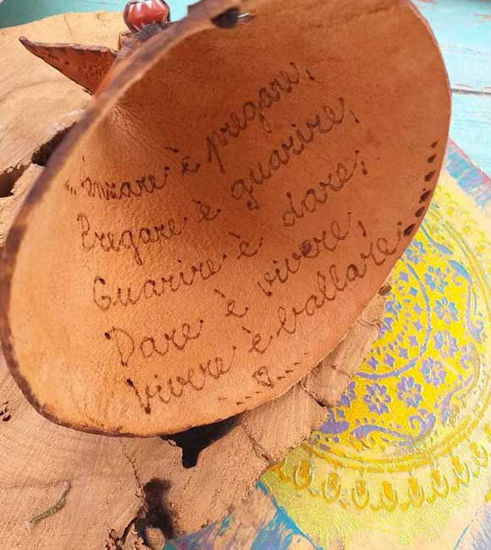 ...anzare è pregare,
Pregare è guarire,
Guarire è dare,
Dare è vivere,
Vivere è ballare;
...♡...